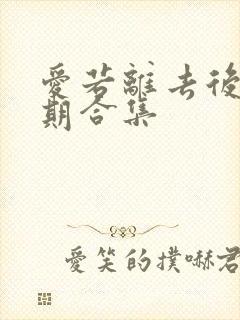 愛若離去後
期合集
愛笑的撲嚇君